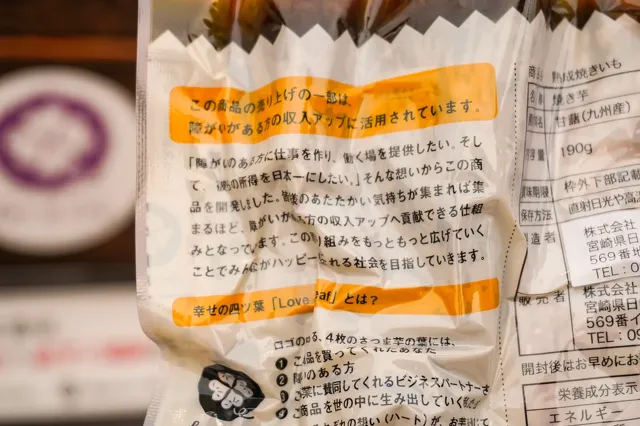 この商品の売り上げの一部は、
障がいがある方の収入アップに活用されています。
「障がいのある方に仕事を作り、働く場を提供したい。そし
て、彼らの所得を日本一にしたい。」そんな想いからこの商
品を開発しました。皆様のあたたかい気持ちが集まれば集
まるほど、障がいがある方の収入アップへ貢献できる仕組
みとなっています。この取り組みをもっともっと広げていく
ことでみんながハッピーになれる社会を目指していきます。
幸せの四ツ葉「Love Leaf」とは?
ロゴの
4枚のさつま芋の葉には、
❶ この商品を買ってくれたあなた
❷ 障がいのある方
❸
事業に賛同してくれるビジネスパートナー
❹ この商品を世の中に生み出していく
ぞれの想い(ハート)が、
熟成焼きいも
焼き芋
甘藷(九州産)
190g
賞味期限
枠外下部記載
保存方法
直射日光や高温
製造者
株式会社
宮崎県日
569番地
TEL:0
販売者
株式会社
宮崎県日
569番
TEL:09
開封後はお早めにお
栄養成分表示
エネルギー